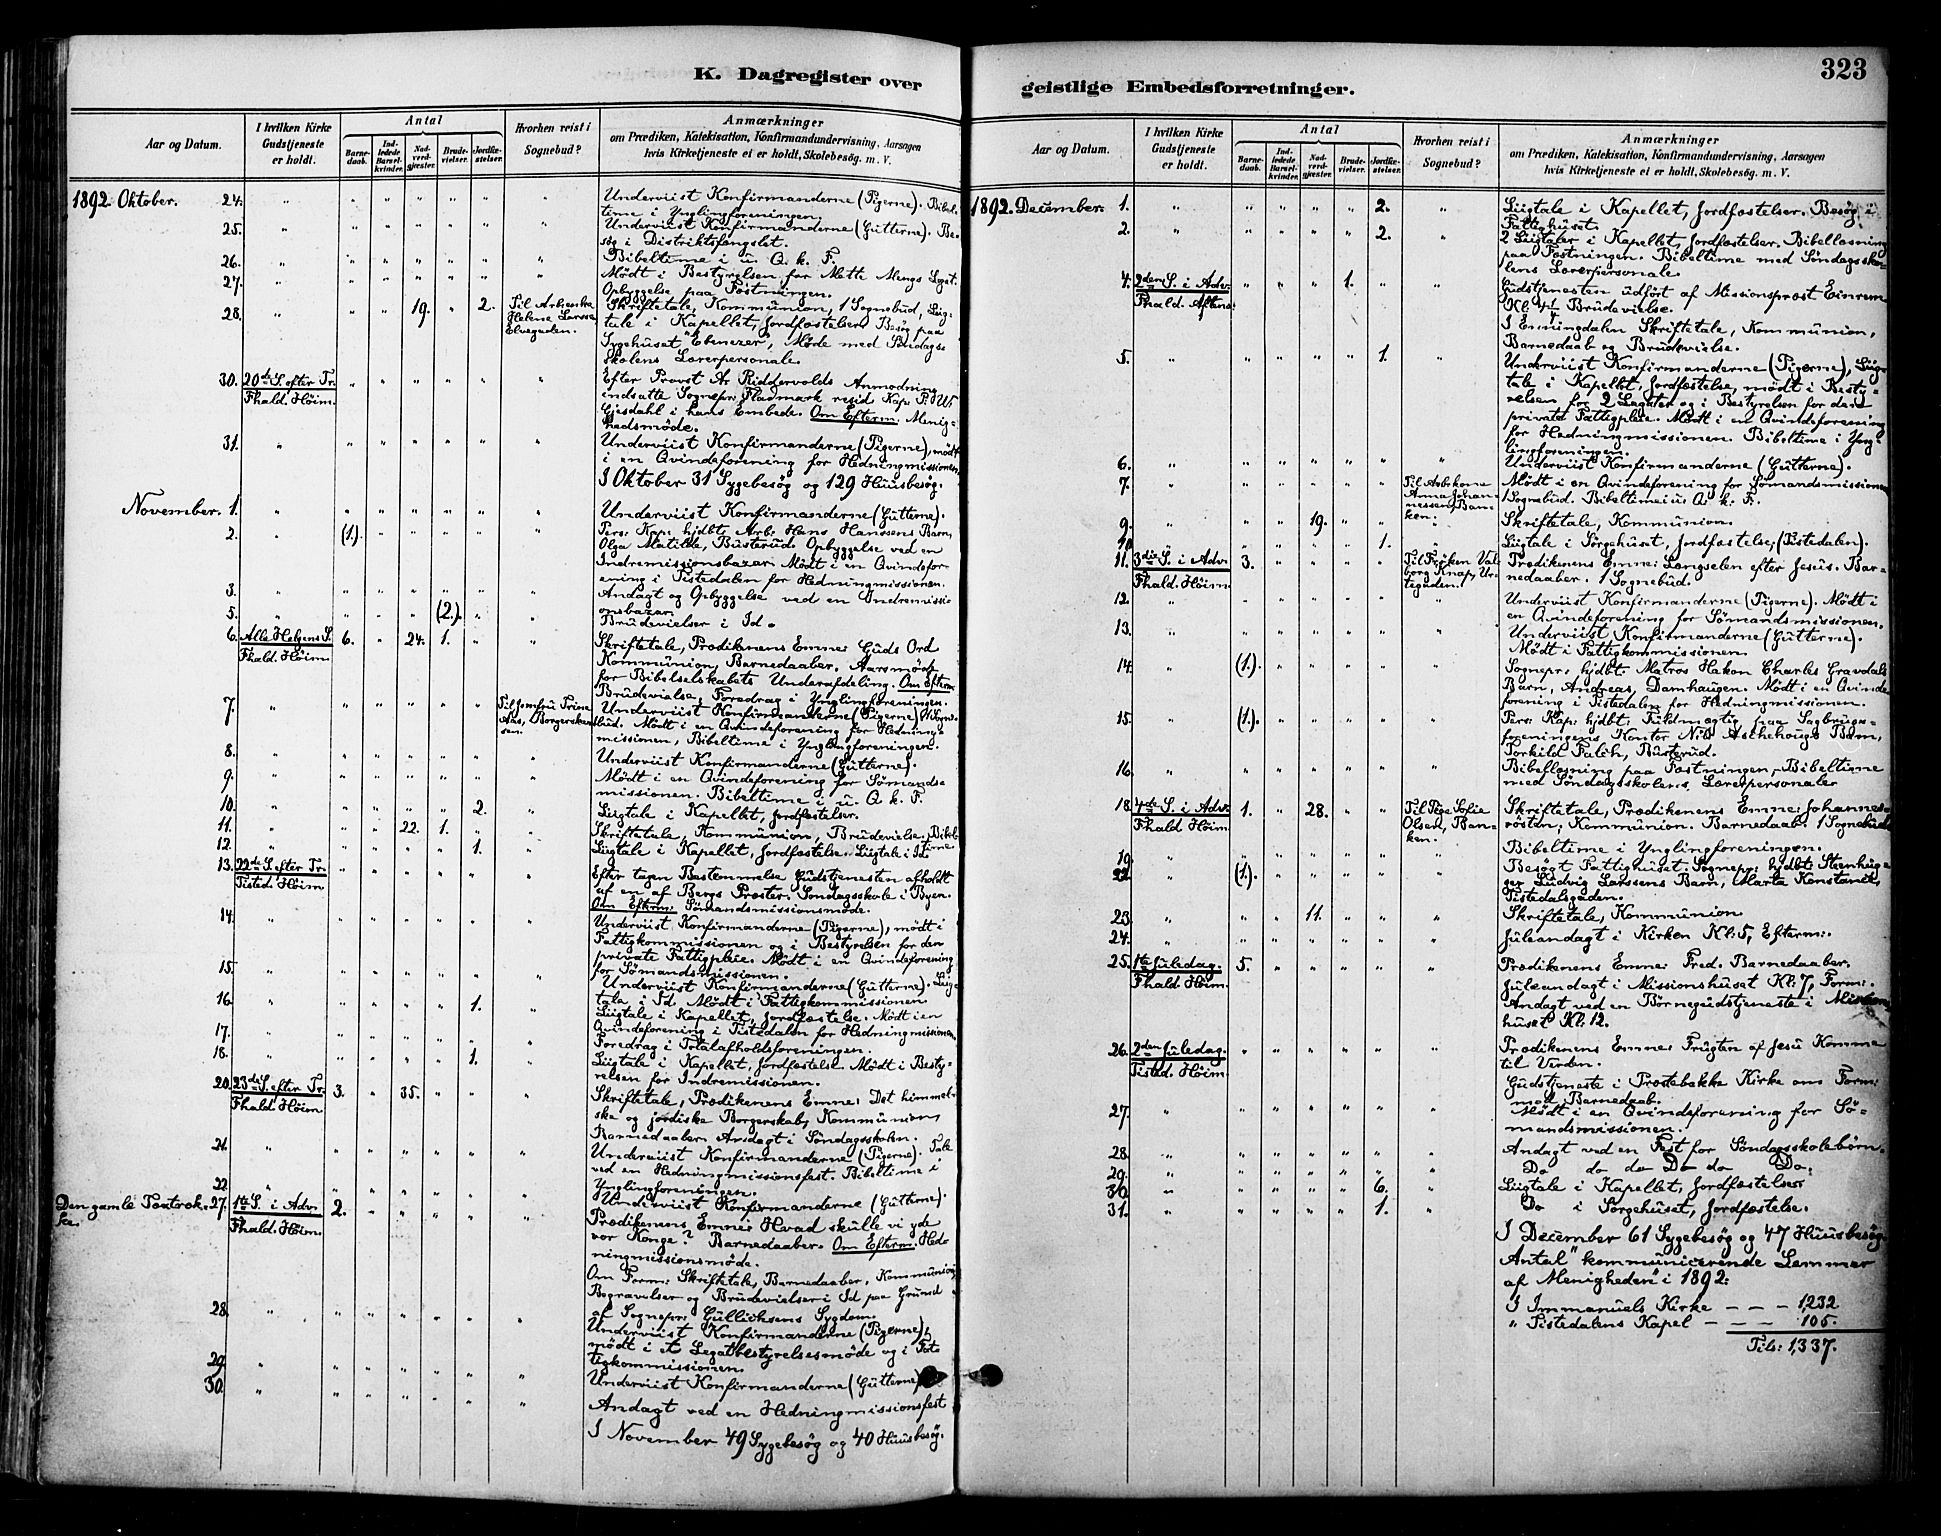 K. Dagregister over geistlige Embedsforretninger.
323
Aar og Datum. I hvilken Kirke Gudstjeneste er holdt. Antal Barnedaab. Indledede Barselkvinder. Nadverdgjester. Brudevielser. Jordfæstelser. Hvorhen reist i Sognebud? Anmærkninger
om Prædiken, Katekisation, Konfirmandundervisning, Aarsagen
hvis Kirketjeneste ei er holdt, Skolebesøg. m. V.
1892 Oktober. 24. Underviist Konfirmanderne (Pigerne). Bibel-
time i Ynglingforeningen.
25. Underviist Konfirmanderne (Gutterne). Be-
søg i Distriktsfængslet.
26. Bibeltime i u. Q. k. F.
27. Mødt i Bestyrelsen for Meths Mengs Legat.
Opbyggelse paa Fæstningen.
28. 19. 2. Til Arbenke
Helene Larssen
Elvegaden.
Skriftetale, Kommunion, 1 Sognebud, Liig-
tale i Kapellet, Jordfæstelser. Besøg paa
Sygehuset "Ebenezer", Møde med Søndags-
skolens Lærerpersonale.
30. 20de S. efter Tr.
Fhald. Høim.
Efter Provst Ar. Riddervolds Anmodning
indsatte Sognepr. Fladmark resid. Kap. P. W.
i hans Embede. Om Efterm. Menig-
hedsmøde.
31. Underviist Konfirmanderne (Pigerne), mødt
i en Qvindeforening for Hedningmissionen.
I Oktober 31 Sygebesøg og 129 Huusbesøg.
November. 1. Underviist Konfirmanderne (Gutterne).
2. (1.) Pers. Kap. hjdbt. Arb. Hans Hanssens Barn,
Olga Matilde, Busterud. Opbyggelse ved en
Indremissionsbazar. Mødt i en Qvindefor-
ening i Tistedalen for Hedningmissionen.
3. Andagt og Opbyggelse ved en Indremissi-
onsbazar.
5. (2.) Brudevielser i Id.
6. Alle Helgens S.
Fhald. Høim.
6. 24. 1. Skriftetale, Prædikenens Emne: Guds Ord
Kommunion, Barnedaaber. Aarsmøde
for Bibelselskabets Underafdeling. Om Efterm.
Brudevielse, Foredrag i Ynglingforeningen.
7. Til Jomfru Trine
Aas, Borgerskans-
sen.
Underviist Konfirmanderne (Pigerne) 1 Sogne-
bud. Mødt i en Qvindeforening for Hedning-
missionen, Bibeltime i Ynglingforeningen.
8. Underviist Konfirmanderne (Gutterne).
9. Mødt i en Qvindeforening for Sømands-
missionen. Bibeltime i u. Q. k. F.
10. 2. Liigtale i Kapellet, Jordfæstelser.
11. 22. 1. Skriftetale, Kommunion, Brudevielse, Bibel-
time
12. 1. Liigtale i Kapellet, Jordfæstelse. Liigtale i Id.
13. 22de S. efter Tr.
Tisted. Høim.
Efter tagen Bestemmelse Gudstjenesten afholdt
af en af Bergs Præster. Søndagsskole i Byen.
Om Efterm. Sømandsmissionsmøde.
14. Underviist Konfirmanderne (Pigerne), mødt i
Fattigkommissionen og i Bestyrelsen for den
private Fattigpleie. Mødt i en Qvindeforening
for Sømandsmissionen.
15. Underviist Konfirmanderne (Gutterne). Liig-
tale i Id. Mødt i Fattigkommissionen
16. 1. Liigtale i Kapellet, Jordfæstelse. Mødt i en
Qvindeforening i Tistedalen for Hedningmissionen.
17. Foredrag i Totalafholdsforeningen.
18. 1. Liigtale i Kapellet, Jordfæstelse. Mødt i Besty-
relsen for Indremissionen.
20. 23de S. efter Tr.
Fhald. Høim.
3. 35. Skriftetale, Prædikenens Emne: Det himmel-
ske og jordiske Borgerskab, Kommunion,
Barnedaaber. Andagt i Søndagsskolen.
21. Underviist Konfirmanderne (Pigerne). Tale
ved en Hedningmissionsfest. Bibeltime i
Ynglingforeningen.
22. Underviist Konfirmanderne (Gutterne).
Den gamle Textræk-
ke.
27. 1ste S. i Adv.
Fhald. Høim.
2. Prædikenens Emne: Hvad skulle vi yde
vor Konge? Barnedaaber. Om Efterm. Hed-
ningmissionsmøde.
Om Form. Skriftetale, Barnedaaber, Kommunion,
Begravelser og Brudevielser i Id paa Grund
af Sognepr. Gullichsens Sygdom.
28. Underviist Konfirmanderne (Pigerne),
mødt i et Legatbestyrelsesmøde og i Fat-
tigkommissionen.
29. Underviist Konfirmanderne (Gutterne)
30. Andagt ved en Hedningmissionsfest
I November 49 Sygebesøg og 40 Huusbesøg.
Aar og Datum. I hvilken Kirke Gudstjeneste er holdt. Antal Barnedaab. Indledede Barselkvinder. Nadverdgjester. Brudevielser. Jordfæstelser. Hvorhen reist i Sognebud? Anmærkninger
om Prædiken, Katekisation, Konfirmandundervisning, Aarsagen
hvis Kirketjeneste ei er holdt, Skolebesøg. m. V.
1892. December. 1. 2. Liigtale i Kapellet, Jordfæstelser. Besøg i
Fattighuset.
2. 2. 2 Liigtaler i Kapellet, Jordfæstelser. Bibellæsning
paa Fæstningen. Bibeltime med Søndagssko-
lens Lærerpersonale.
4. 2den S. i Adv.
Fhald. Aftens.
1. Gudstjenesten udført af Missionsprest Einrem
Kl. 4¼ Brudevielse.
I Enningdalen Skriftetale, Kommunion,
Barnedaab og Brudevielse.
5. 1. Underviist Konfirmanderne (Pigerne), Liig-
tale i Kapellet, Jordfæstelse, mødt i Besty-
relsen for 2 Legater og i Bestyrelsen for den
private Fattigpleie. Mødt i en Qvindeforening
for Hedningmissionen. Bibeltime i Yng-
lingforeningen.
6. Underviist Konfirmanderne (Gutterne).
7. Til Arbkone
Anna Johan-
nessen, Ban-
ken.
Mødt i en Qvindeforening for Sømandsmissionen
1 Sognebud. Bibeltime i u. Q. k. F.
9. 19. Skriftetale, Kommunion.
10. 1. Liigtale i Sørgehuset, Jordfæstelse, (Tistedalen).
11. 3die S. i Adv.
Fhald. Høim.
3. Til Frøken Val-
borg Knap, Ur-
tegaden.
Prædikenens Emne: Længselen efter Jesus. Bar-
nedaaber. 1 Sognebud.
12. Underviist Konfirmanderne (Pigerne). Mødt i
en Qvindeforening for Sømandsmissionen.
13. Underviist Konfirmanderne (Gutterne).
Mødt i Fattigkommissionen
14. (1.) Sognepr. hjdbt. Matros Hakon Charles Gravdals
Barn, Andreas, Damhaugen. Mødt i en Qvinde-
forening i Tistedalen for Hedningmissionen.
15. (1.) Pers. Kap. hjdbt. Fuldmægtig paa Sagbrugs-
foreningens Kontor Nils Aschehougs Barn,
Torkild Falch, Busterud.
16. Bibellæsning paa Fæstningen, Bibeltime
med Søndagsskolens Lærerpersonale
18. 4de S. i Adv.
Fhald Høim.
1. 28. Til Pige Sofie
Olsen, Ban-
ken.
Skriftetale, Prædikenens Emne: Johannes-
røsten, Kommunion. Barnedaab. 1 Sognebud
19. Bibeltime i Ynglingforeningen.
22. (1.) Besøgt Fattighuset. Sognepr. hjdbt. Steenhug-
ger Ludvig Larssens Barn, Marta Konstance,
Tistedalsgaden.
23. 11. Skriftetale, Kommunion
24. Juleandagt i Kirken Kl. 5, Efterm.
25. 1ste Juledag.
Fhald. Høim.
5. Prædikenens Emne: Fred. Barnedaaber.
Juleandagt i Missionshuset Kl. 7, Form.
Andagt ved en Børnegudstjeneste i Missions-
huset Kl. 12.
26. 2den Juledag.
Tisted. Høim.
Prædikenens Emne: Frugten af Jesu Komme
til Verden.
Gudstjeneste i Præstebakke Kirke om Form.
med Barnedaab.
27. Mødt i en Qvindeforening for Sø-
mandsmissionen.
28. Andagt ved en Fest for Søndagsskolebørn.
29. Do do do Do do Do.
30. 6. Liigtale i Kapellet, Jordfæstelser
31. 1. Do i Sørgehuset, Jordfæstelse.
I December 61 Sygebesøg og 47 Huusbesøg.
Antal "kommunicerende Lemmer
af Menigheden" i 1892:
I Immanuels Kirke — — — 1,232
" Tistedalens Kapel — — — 105.
Tils: 1,337.